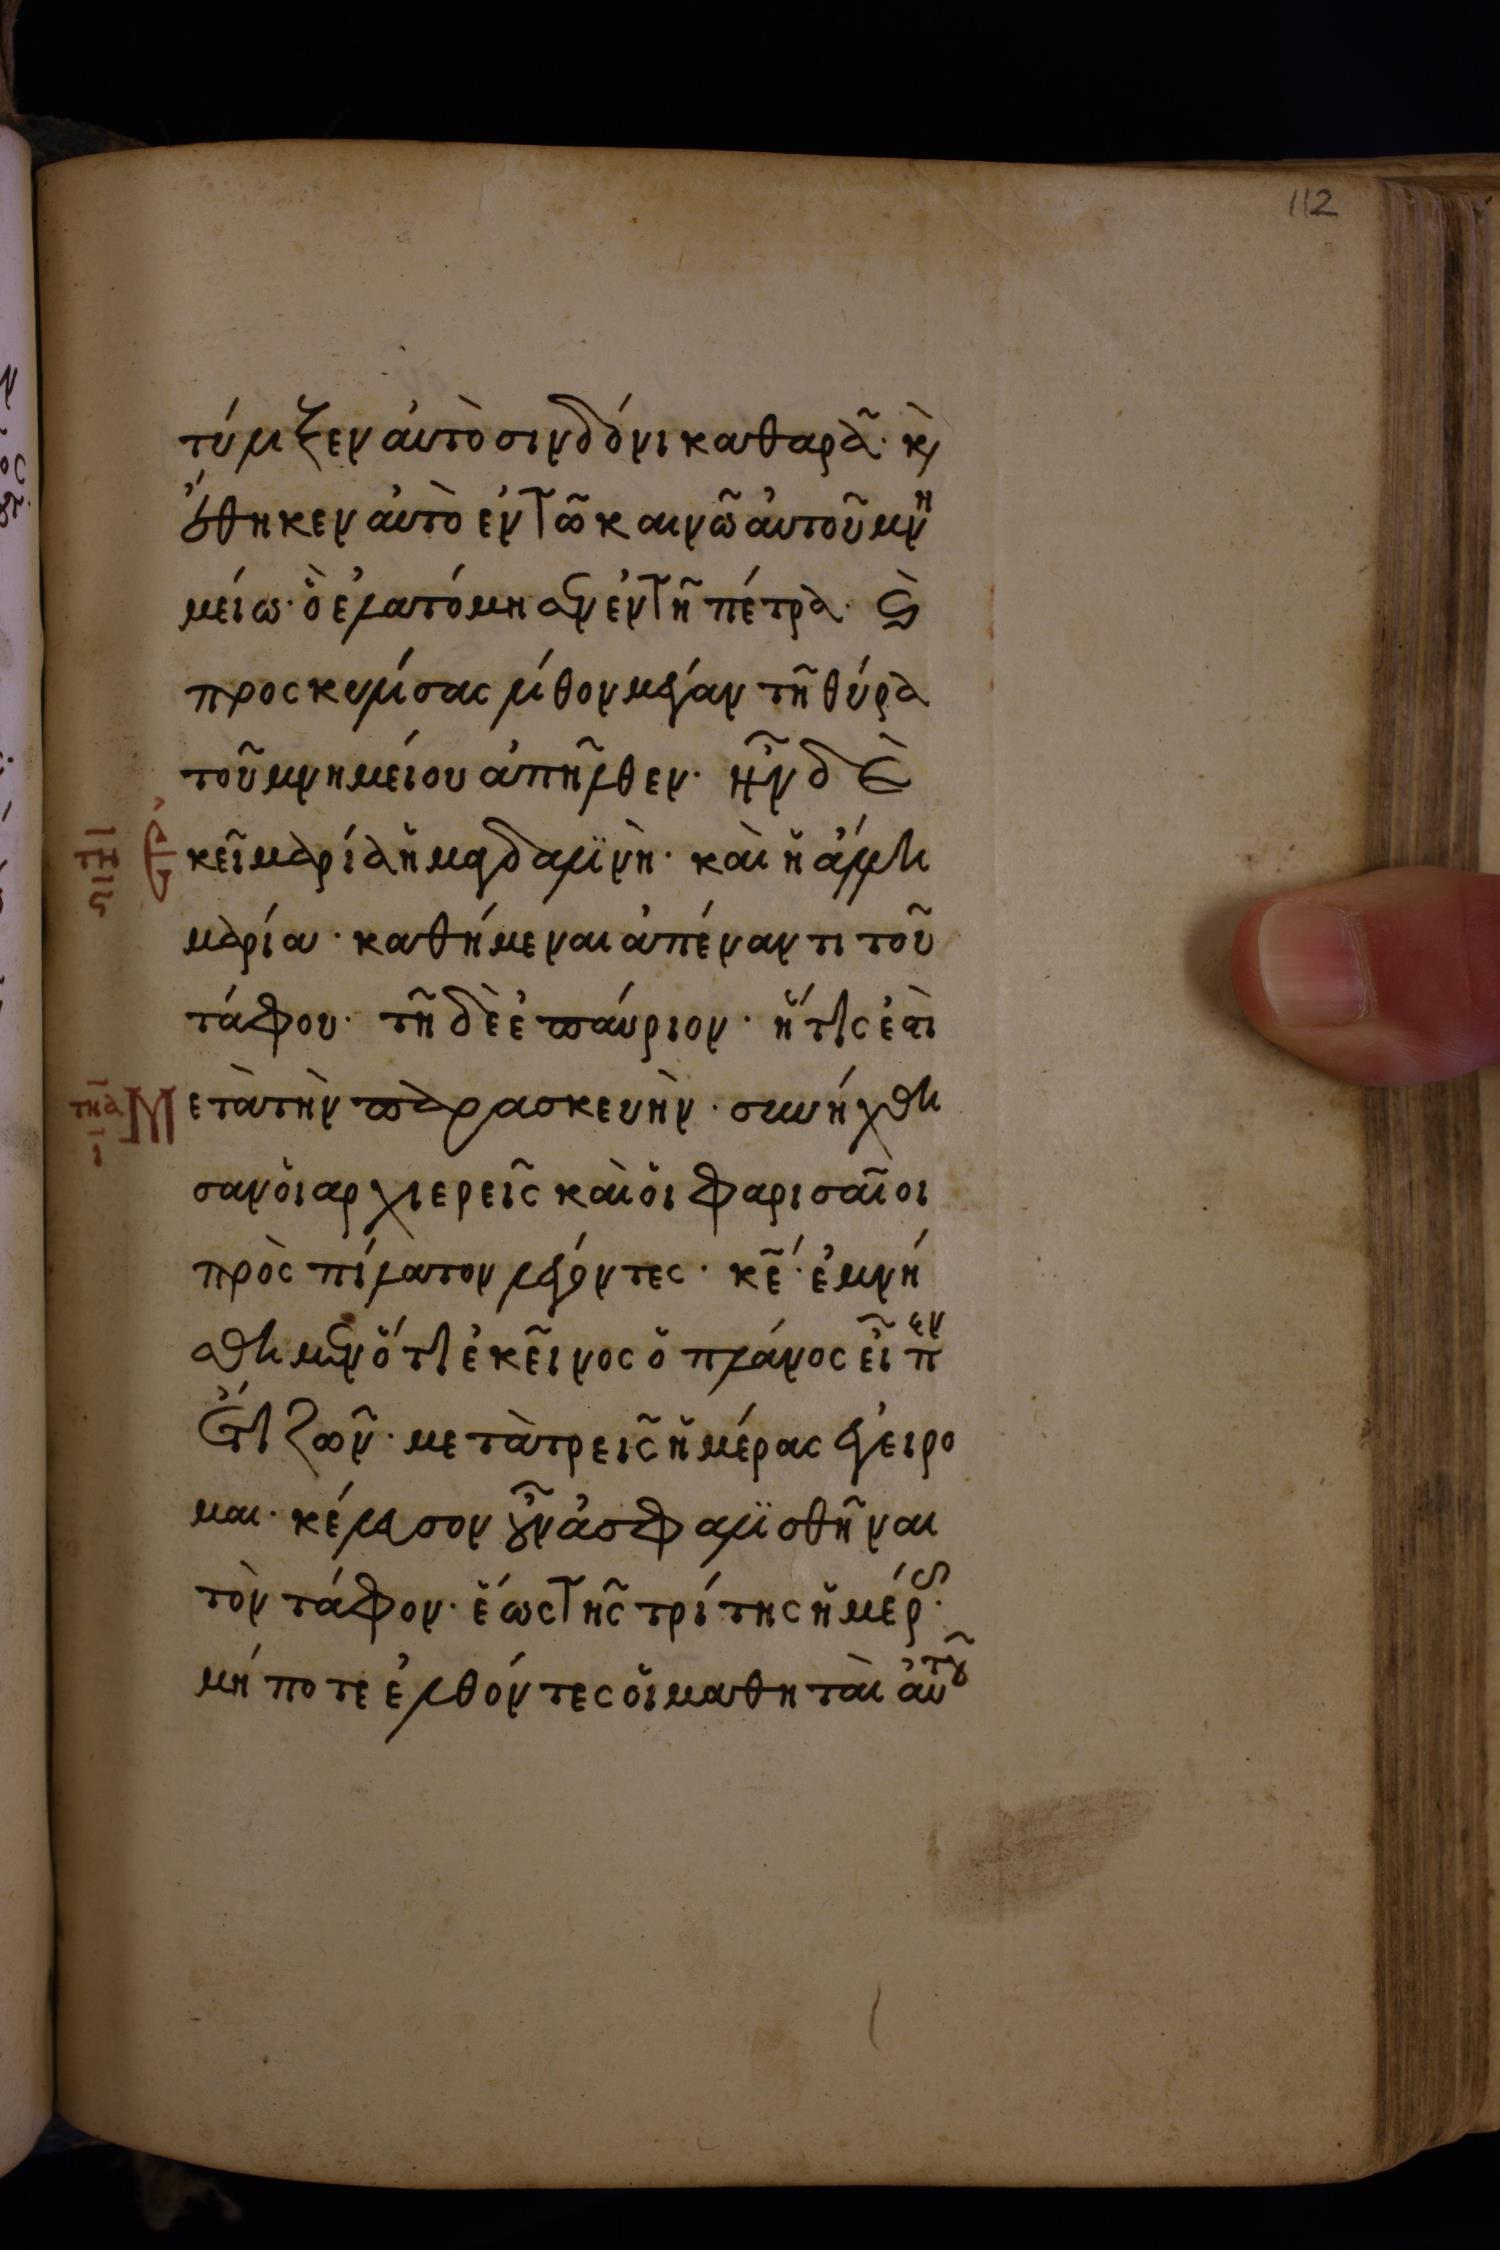 112
τύλιξεν αὐτὸ σινδόνι καθαρᾶ· κ̀
ἔθηκεν αὐτὸ ἐν τῶ καινῶ αὐτοῦ μνη
μείω· ὃ ἐλατόμησεν ἐν τῆ πέτρα· ϛ̀
προσκυλίσας λίθον μέγαν τῆ θύρα
τοῦ μνημείου ἀπῆλθεν· ἦν δὲ ἐ
κεῖ μαρία ἡ μαγδαλϊνὴ· καὶ ἡ ἄλλη
μαρία· καθήμεναι ἀπέναντι τοῦ
τάφου· τῆ δὲ ἐπαύριον· ἥτις ἐστὶ
Μετὰ τὴν παρασκευὴν· συνήχθη
σαν οἱ αρχιερεῖς καὶ οἱ φαρισαῖοι
πρὸς πιλάτον λέγοντες· κ̅ε· ἐμνή
σθημεν ὅτι ἐκεῖνος ὁ πλάνος εἶπεν
ἔτι ζῶν· μετὰ τρεῖς ἡμέρας ἐγείρο
μαι· κέλευσον οὖν ἀσφαλϊσθῆναι
τὸν τάφον· ἕως τῆς τρίτης ἡμέρας·
μήποτε ἐλθόντες οἱ μαθηταὶ αὐτοῦ